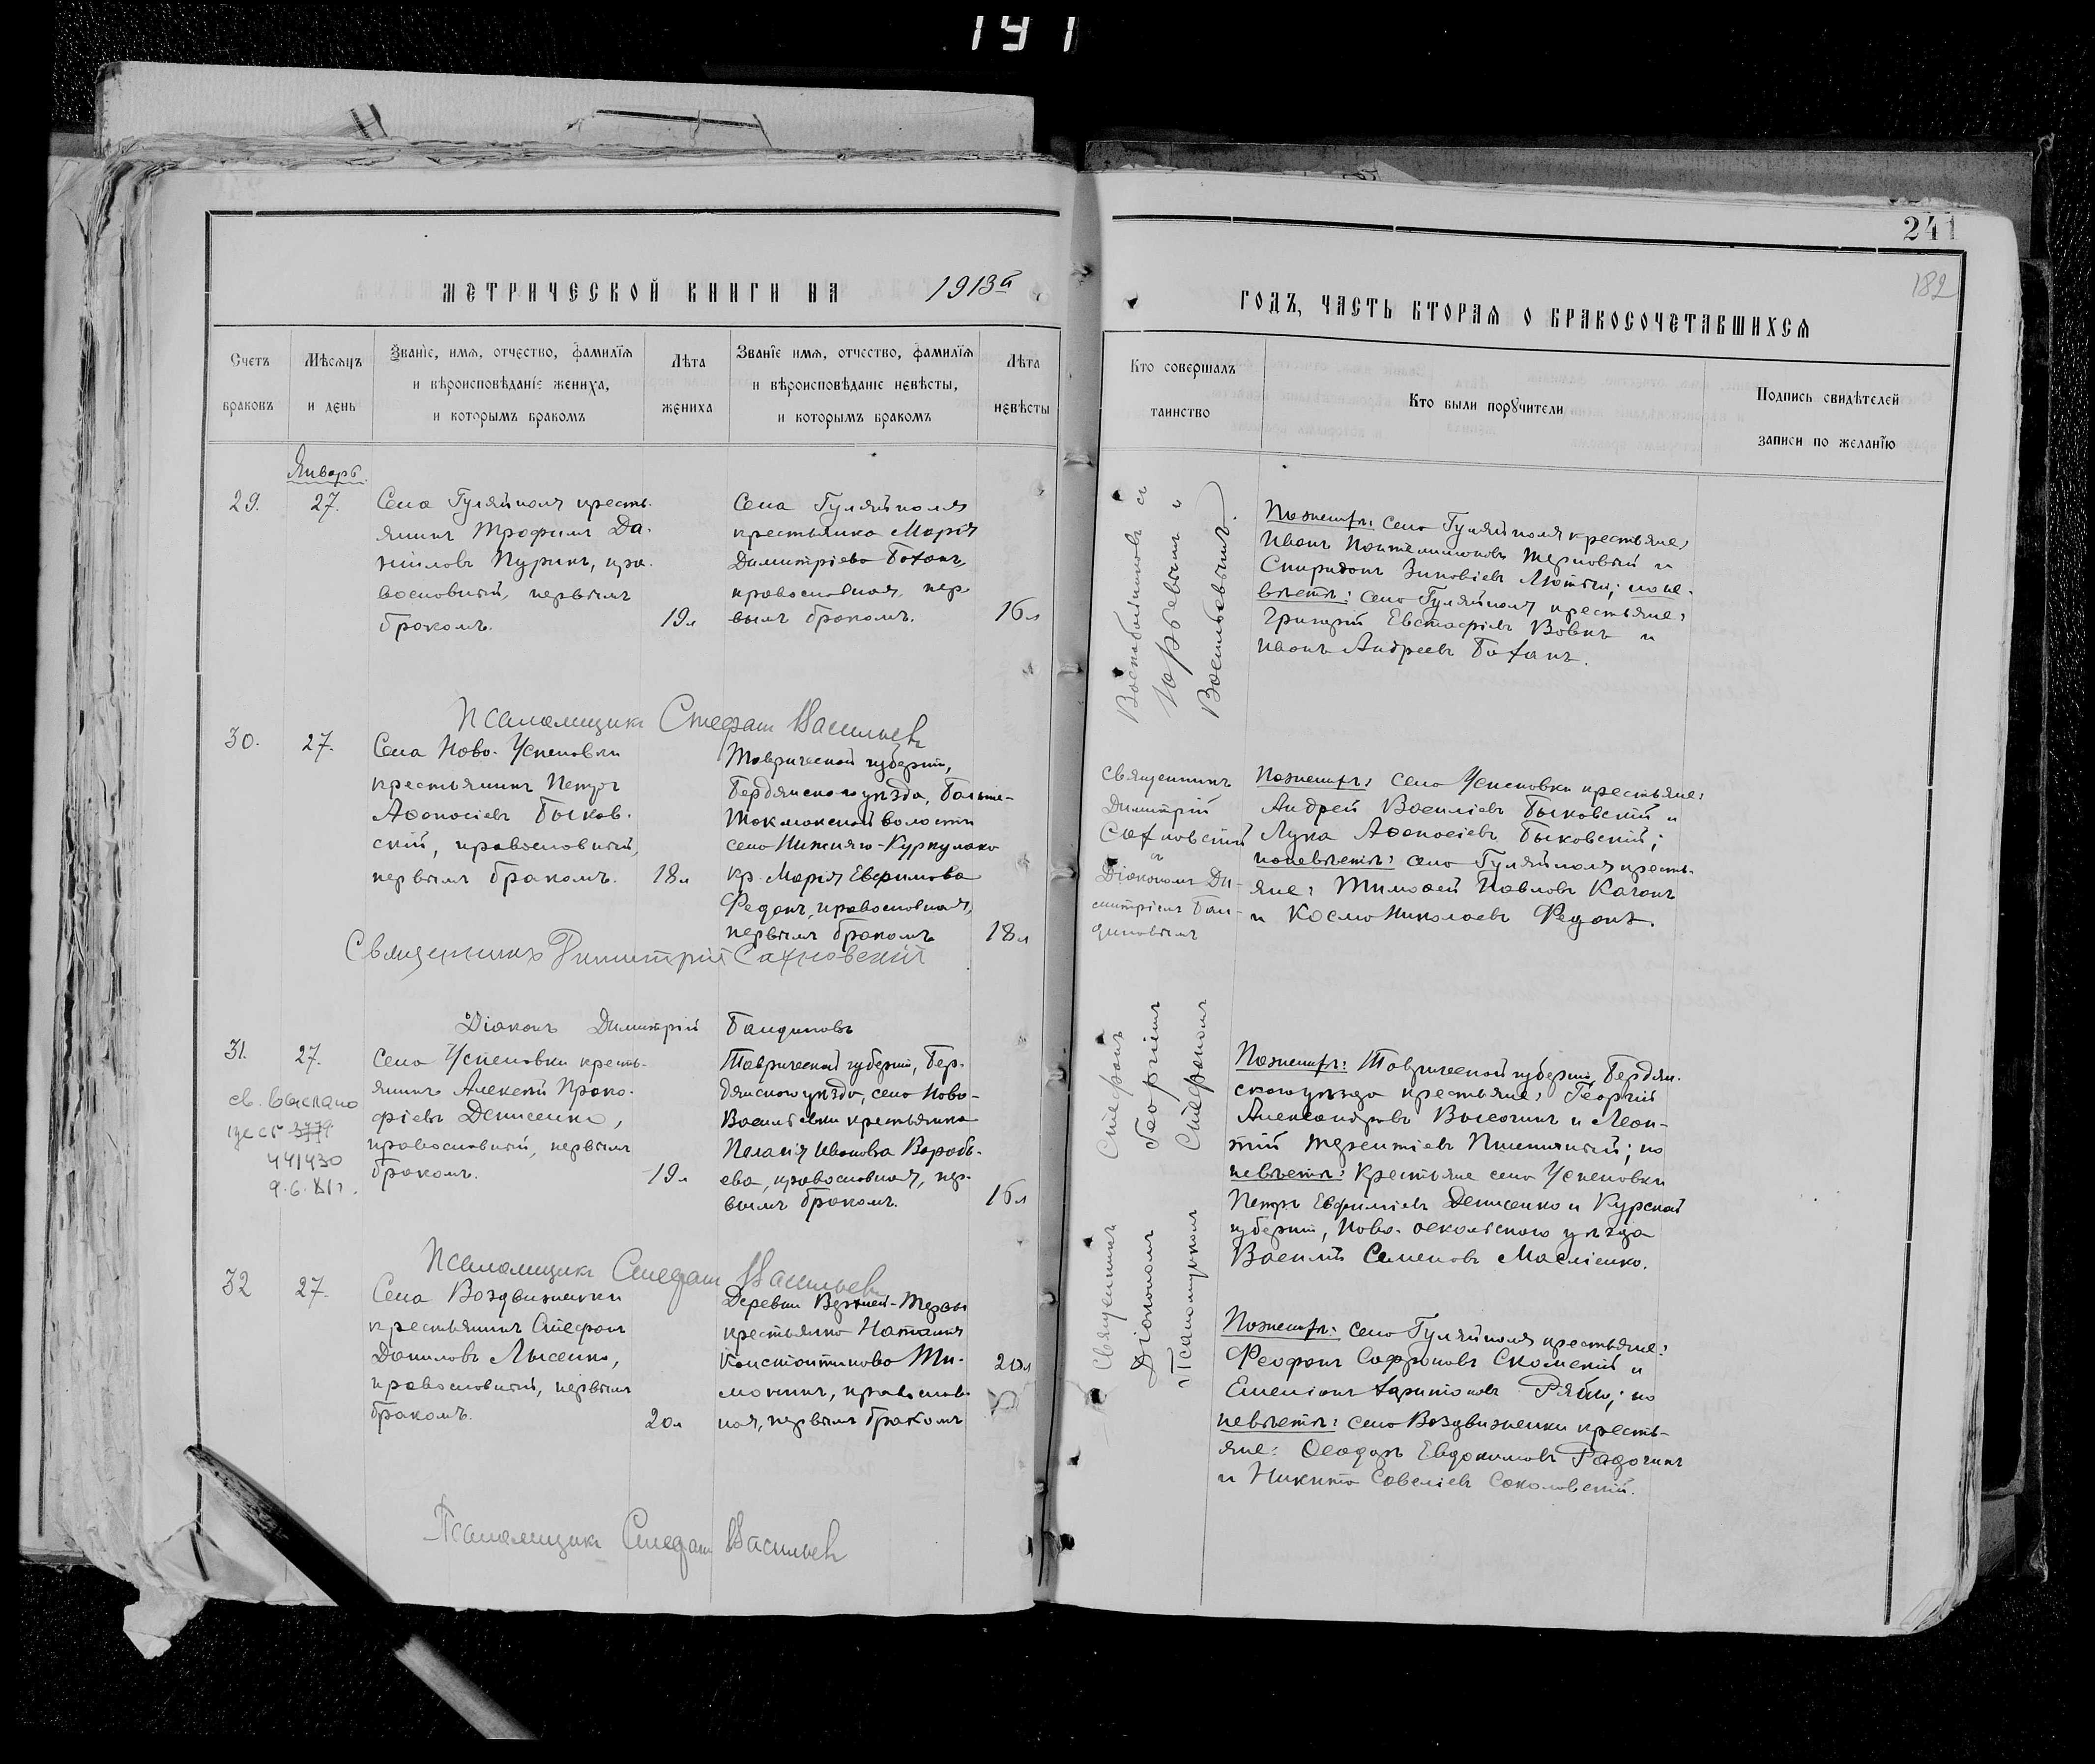 191
241
182
МЕТРИЧЕСКОЙ КНИГИ НА 1913й
ГОДЪ, ЧАСТЬ ВТОРАЯ О БРАКОСОЧЕТАВШИХСЯ
Счетъ
браковъ
Мѣсяцъ
и день
Званіе, имя, отчество, фамилія
и вѣроисповѣданіе жениха,
и которымъ бракомъ
Лѣта
жениха
Званіе имя, отчество, фамилія
и вѣроисповѣданіе невѣсты,
и которымъ бракомъ
Лѣта
невѣсты
Кто совершалъ
таинство
Кто были поручители
Подпись свидѣтелей
записи по желанію
Январь.
29.
27.
Села Гуляйполя кресть-
янинъ Трофимъ Да-
ніиловъ Пуринъ, пра-
вославный, первымъ
бракомъ.
19 л
Села Гуляйполя
крестьянка Марія
Димитріева Боханъ,
православная, пер-
вымъ бракомъ.
16 л
Васильевымъ.
По женихѣ: села Гуляйполя крестьяне:
Иванъ Пантелимоновъ Терновый и
Спиридонъ Зиновіевъ Лютый; по не-
вѣстѣ: села Гуляйполя крестьяне:
Григорій Евстафіевъ Вовкъ и
Иванъ Андреевъ Боханъ.
Псаломщикъ Стефанъ Васильевъ
30.
27.
Села Ново-Успеновки
крестьянинъ Петръ
Аѳонасіевъ Быков-
скій, православный,
первымъ бракомъ.
18 л
Таврической губерніи,
Бердянскаго уѣзда, Больше-
Токмакской волости
села Нижняго-Куркулака
кр. Марія Евфимова
Феданъ, православная,
первымъ бракомъ
18 л
Священникъ
Димитрій
Сахновскій
и
Діакономъ Ди-
митріемъ Бан-
диновымъ
По женихѣ: села Успеновки крестьяне:
Андрей Василіевъ Быковскій и
Лука Аѳонасіевъ Быковскій;
по невѣстѣ: села Гуляйполя кресть-
яне: Тимоѳей Павловъ Качанъ
и Косма Николаевъ Феданъ.
Священникъ Димитрій Сахновскій
Діаконъ Димитрій Бандиновъ
31.
27.
св. выслано
441430
Села Успеновки кресть-
янинъ Алексій Проко-
фіевъ Денисенко,
православный, первымъ
бракомъ.
19 л
Таврической губерніи, Бер-
дянскаго уѣзда, села Ново-
Васильевки крестьянка
Пелагія Иванова Воробь-
ева, православная, пер-
вымъ бракомъ.
16 л
Священникъ Стефанъ
Діакономъ Георгіемъ
Псаломщикомъ Стефаномъ
По женихѣ: Таврической губерніи, Бердян-
скаго уѣзда крестьяне: Георгій
Александровъ Высочинъ и Леон-
тій Терентіевъ Пшеничный; по
невѣстѣ: Крестьяне села Успеновки
Петръ Евфиміевъ Денисенко и Курской
губерніи, Ново-оскольскаго уѣзда
Василій Семеновъ Масліенко.
Псаломщикъ Стефанъ Васильевъ
32
27.
Села Воздвиженки
крестьянинъ Стефанъ
Даниловъ Лысенко,
православный, первымъ
бракомъ.
20 л
Деревни Верхней-Терсы
крестьянка Наталія
Константинова Ти-
мошинъ, православ-
ная, первымъ бракомъ
20 л
По женихѣ: села Гуляйполя крестьяне:
Феофанъ Софроновъ Скомскій и
Емеліанъ Харитоновъ Рябко; по
невѣстѣ: села Воздвиженки кресть-
яне: Ѳеодоръ Евдокимовъ Радочинъ
и Никита Савеліевъ Соколовскій.
Псаломщикъ Стефанъ Васильевъ